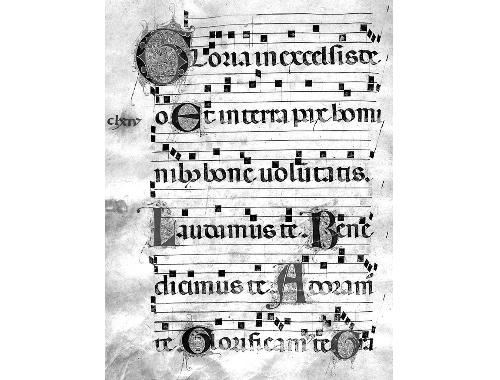 Gloria in excelsis de
o. Et in terra pax homi
clxiv
nibꝰ bone uolūtatis.
Laudamus te. Bene
dicimus te Adoram
te. Glorificam te Gra